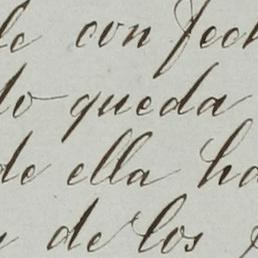 le con fech
do queda
de ella ha
y de los